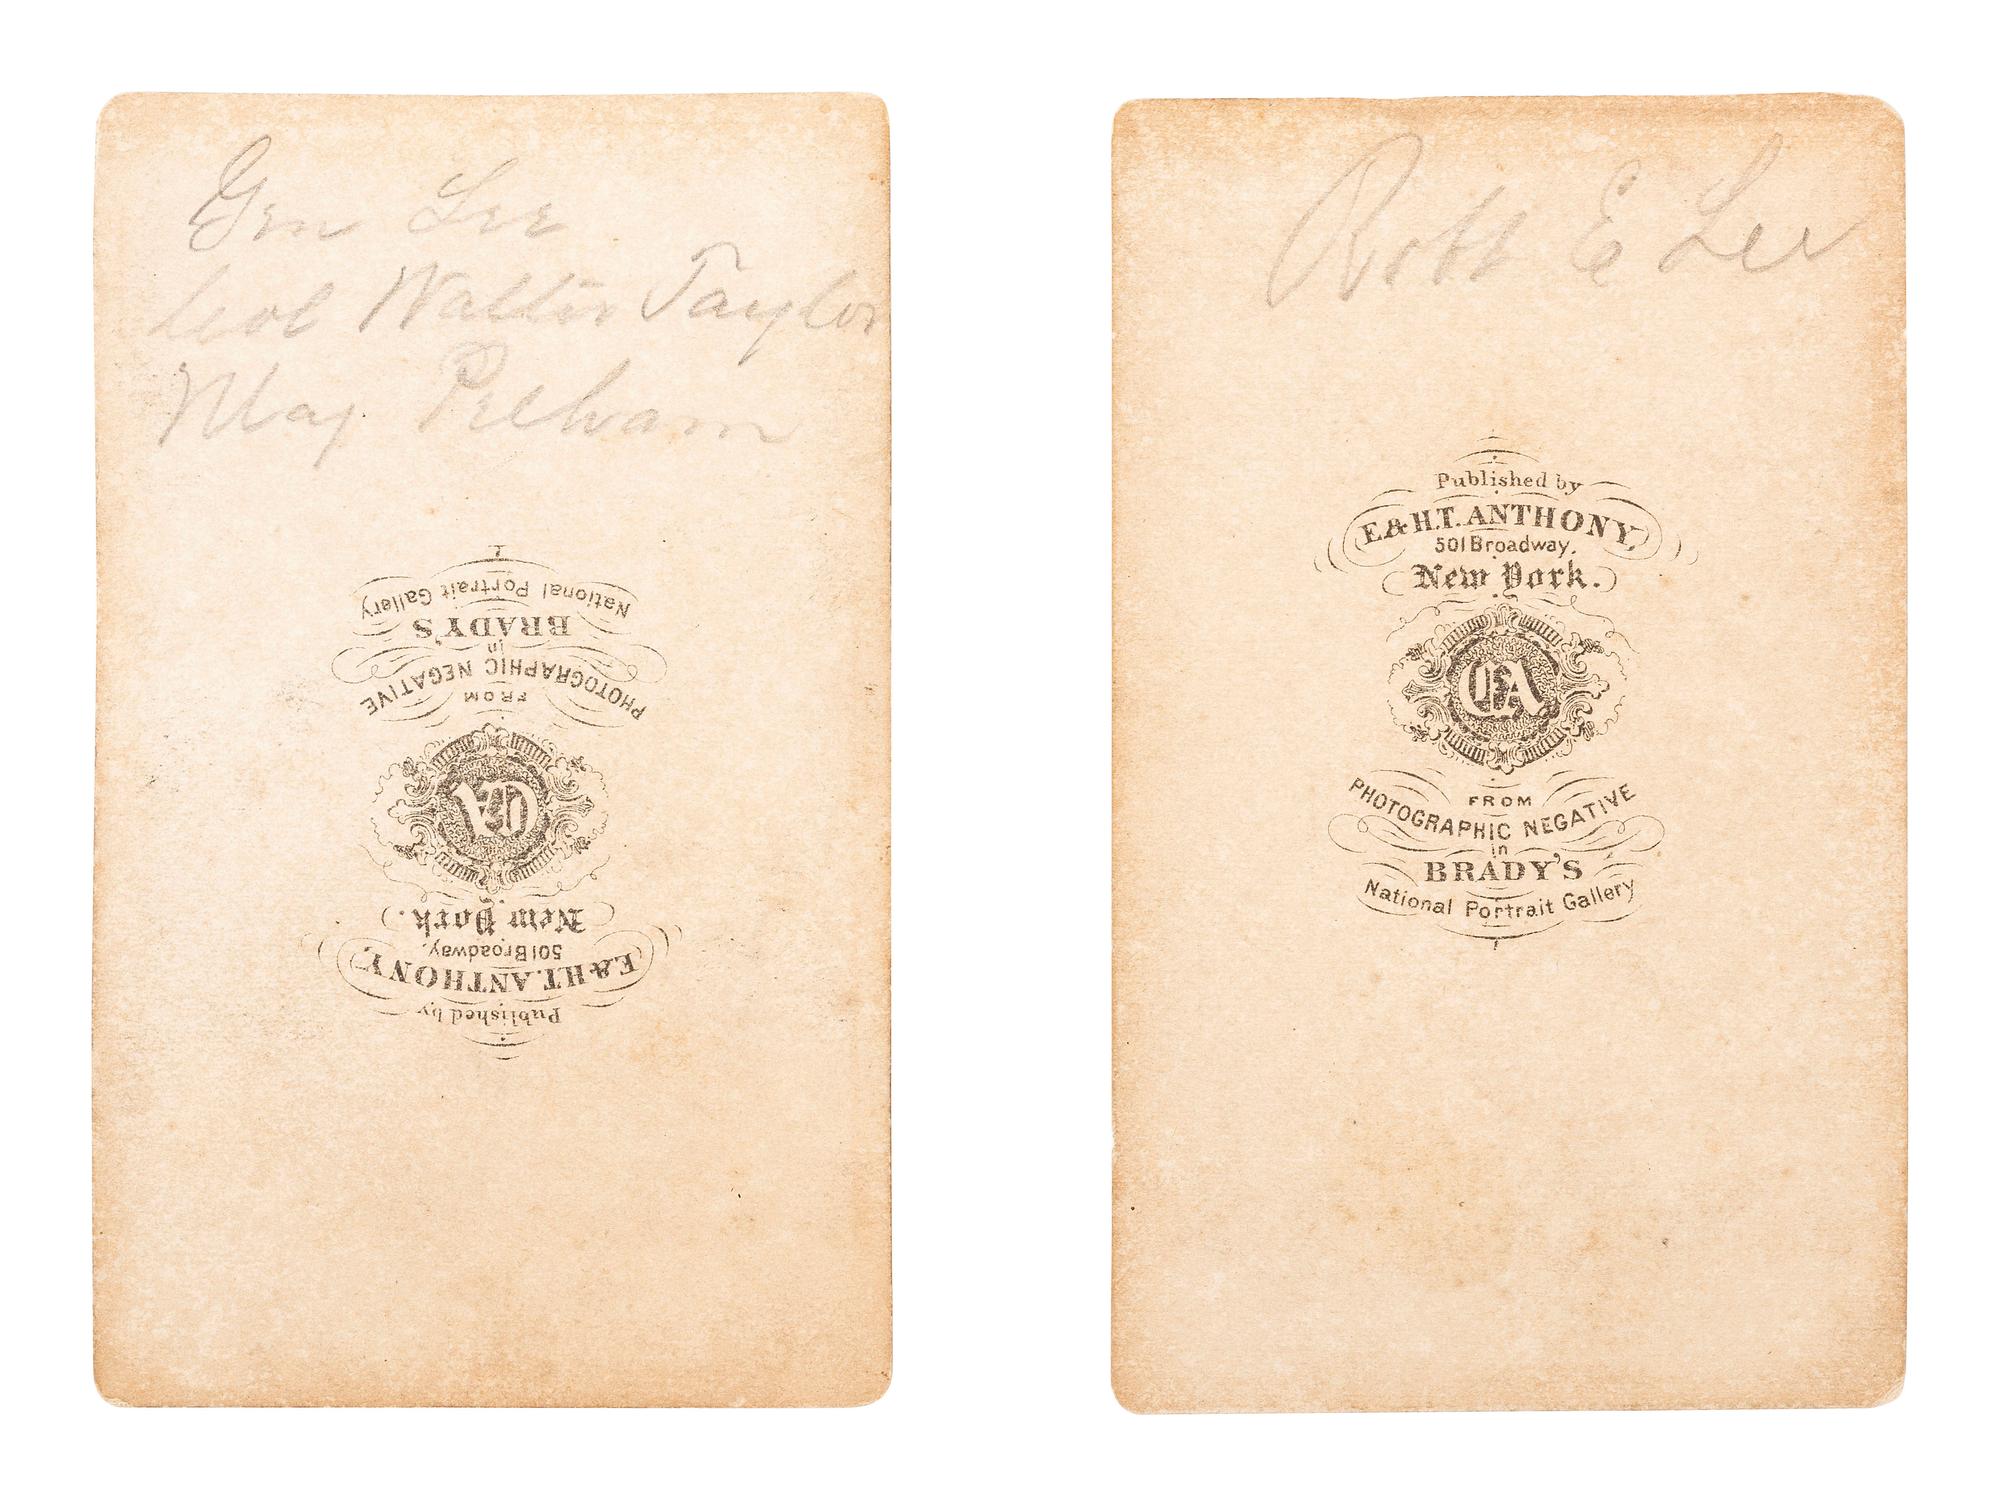 Gen Lee
Col Walter Taylor
Maj Pelham
National Portrait Gallery
BRADY'S
in
PHOTOGRAPHIC NEGATIVE
FROM
EA
New York.
501 Broadway,
E. & H.T. ANTHONY,
Published by
Robt E Lee
Published by
E & H.T. ANTHONY,
501 Broadway,
New York.
EA
FROM
PHOTOGRAPHIC NEGATIVE
in
BRADY'S
National Portrait Gallery